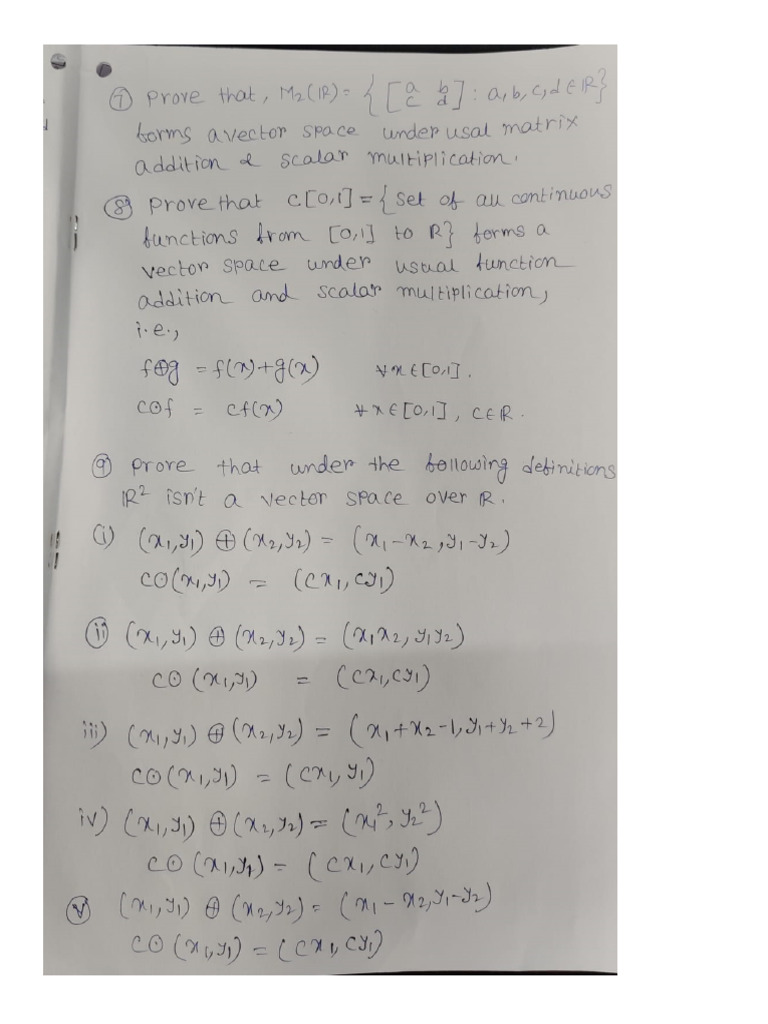 ⑦ Prove that, M₂(ℝ) = { [a b c d] : a, b, c, d ∈ ℝ }
forms a vector space under usal matrix
addition & scalar multiplication.
⑧ Prove that C[0,1] = { set of all continuous
functions from [0,1] to ℝ } forms a
vector space under usual function
addition and scalar multiplication,
i.e.,
f⊕g = f(x)+g(x) ∀ x ∈ [0,1].
c⊙f = cf(x) ∀ x ∈ [0,1], c ∈ ℝ.
⑨ Prove that under the following definitions
ℝ² isn't a vector space over ℝ.
(i) (x₁,y₁) ⊕ (x₂,y₂) = (x₁-x₂, y₁-y₂)
c⊙(x₁,y₁) = (cx₁, cy₁)
(ii) (x₁,y₁) ⊕ (x₂,y₂) = (x₁x₂, y₁y₂)
c⊙(x₁,y₁) = (cx₁, cy₁)
iii) (x₁,y₁) ⊕ (x₂,y₂) = (x₁+x₂-1, y₁+y₂+2)
c⊙(x₁,y₁) = (cx₁, y₁)
iv) (x₁,y₁) ⊕ (x₂,y₂) = (x₁², y₂²)
c⊙(x₁,y₁) = (cx₁, cy₁)
ⓥ (x₁,y₁) ⊕ (x₂,y₂) = (x₁-x₂, y₁-y₂)
c⊙(x₁,y₁) = (cx₁, cy₁)